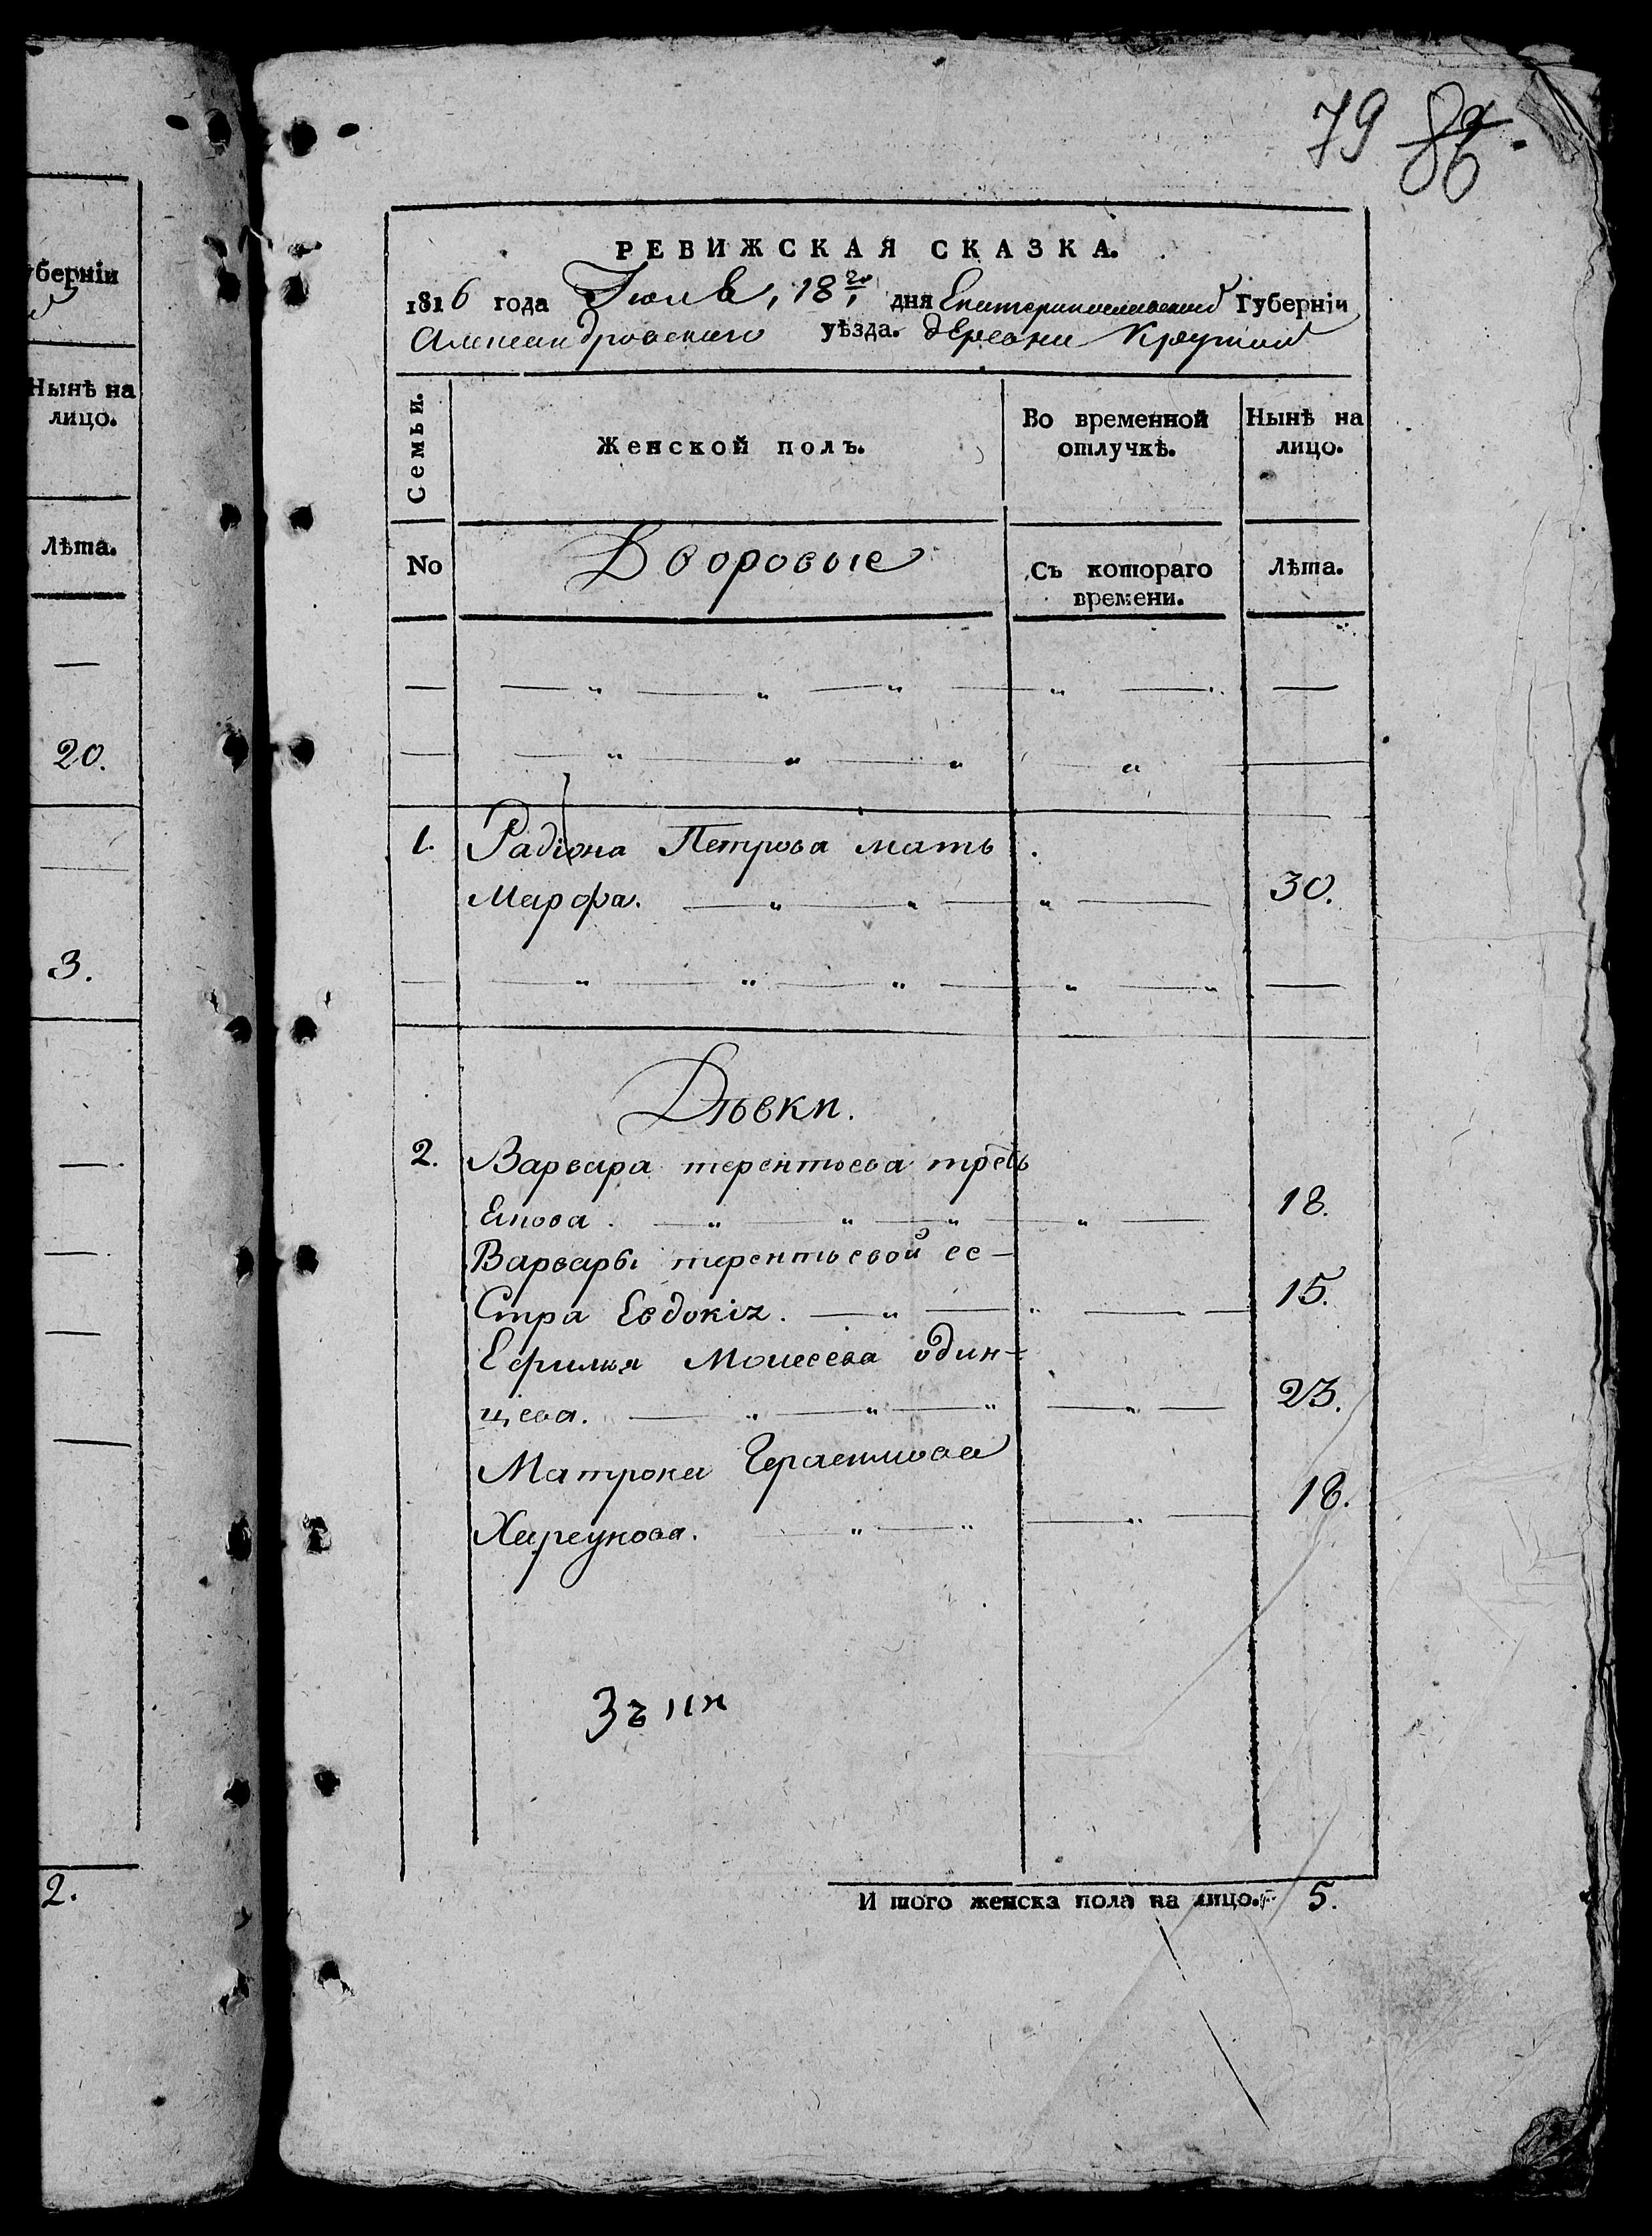 79 86
берніи
Нынѣ на
лицо.
Лѣта.
20.
3.
2.
РЕВИЖСКАЯ СКАЗКА.
1816 года Іюля, 18го дня Екатеринославской Губерніи
Александровскаго уѣзда. деревни Крутой
Семьи.
Женской полъ.
Во временной
отлучкѣ.
Нынѣ на
лицо.
No
Дворовые
Съ котораго
времени.
Лѣта.
1. Радіона Петрова мать
Марфа. 30.
Дѣвки.
2. Варвара терентьева
18.
Варвары терентьевой се-
стра Евдокія. 15.
Моисеева один-
цева. 23.
Матрона Герасимова
18.
И того женска пола на лицо. 5.